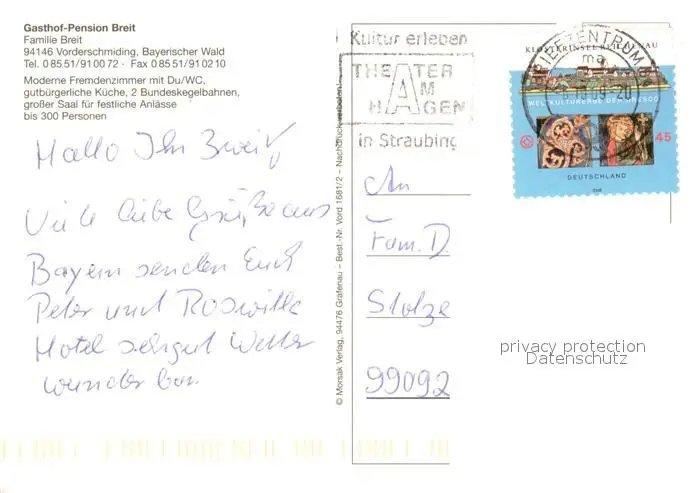 Gasthof-Pension Breit
Familie Breit
94146 Vorderschmiding, Bayerischer Wald
Tel. 0 85 51/9 10 07 2 · Fax 0 85 51/91 02 10
Moderne Fremdenzimmer mit Du/WC,
gutbürgerliche Küche, 2 Bundeskegelbahnen,
großer Saal für festliche Anlässe
bis 300 Personen
Hallo Ihr Zwei
Viele liebe Grüße aus
Bayern senden Euch
Peter und Roswitha
Hotel sehr gut Wetter
wunderbar
© Morsak Verlag, 94476 Grafenau – Best.-Nr. Vord 1681/2 – Nachdruck verboten!
Kultur erleben
THEATER
AM
HAGEN
in Straubing
BRIEFZENTRUM
KLOSTERINSEL REICHENAU
WELTKULTURERBE DER UNESCO
45
DEUTSCHLAND
2008
An
Fam. D.
Stolze
99092
privacy protection
Datenschutz